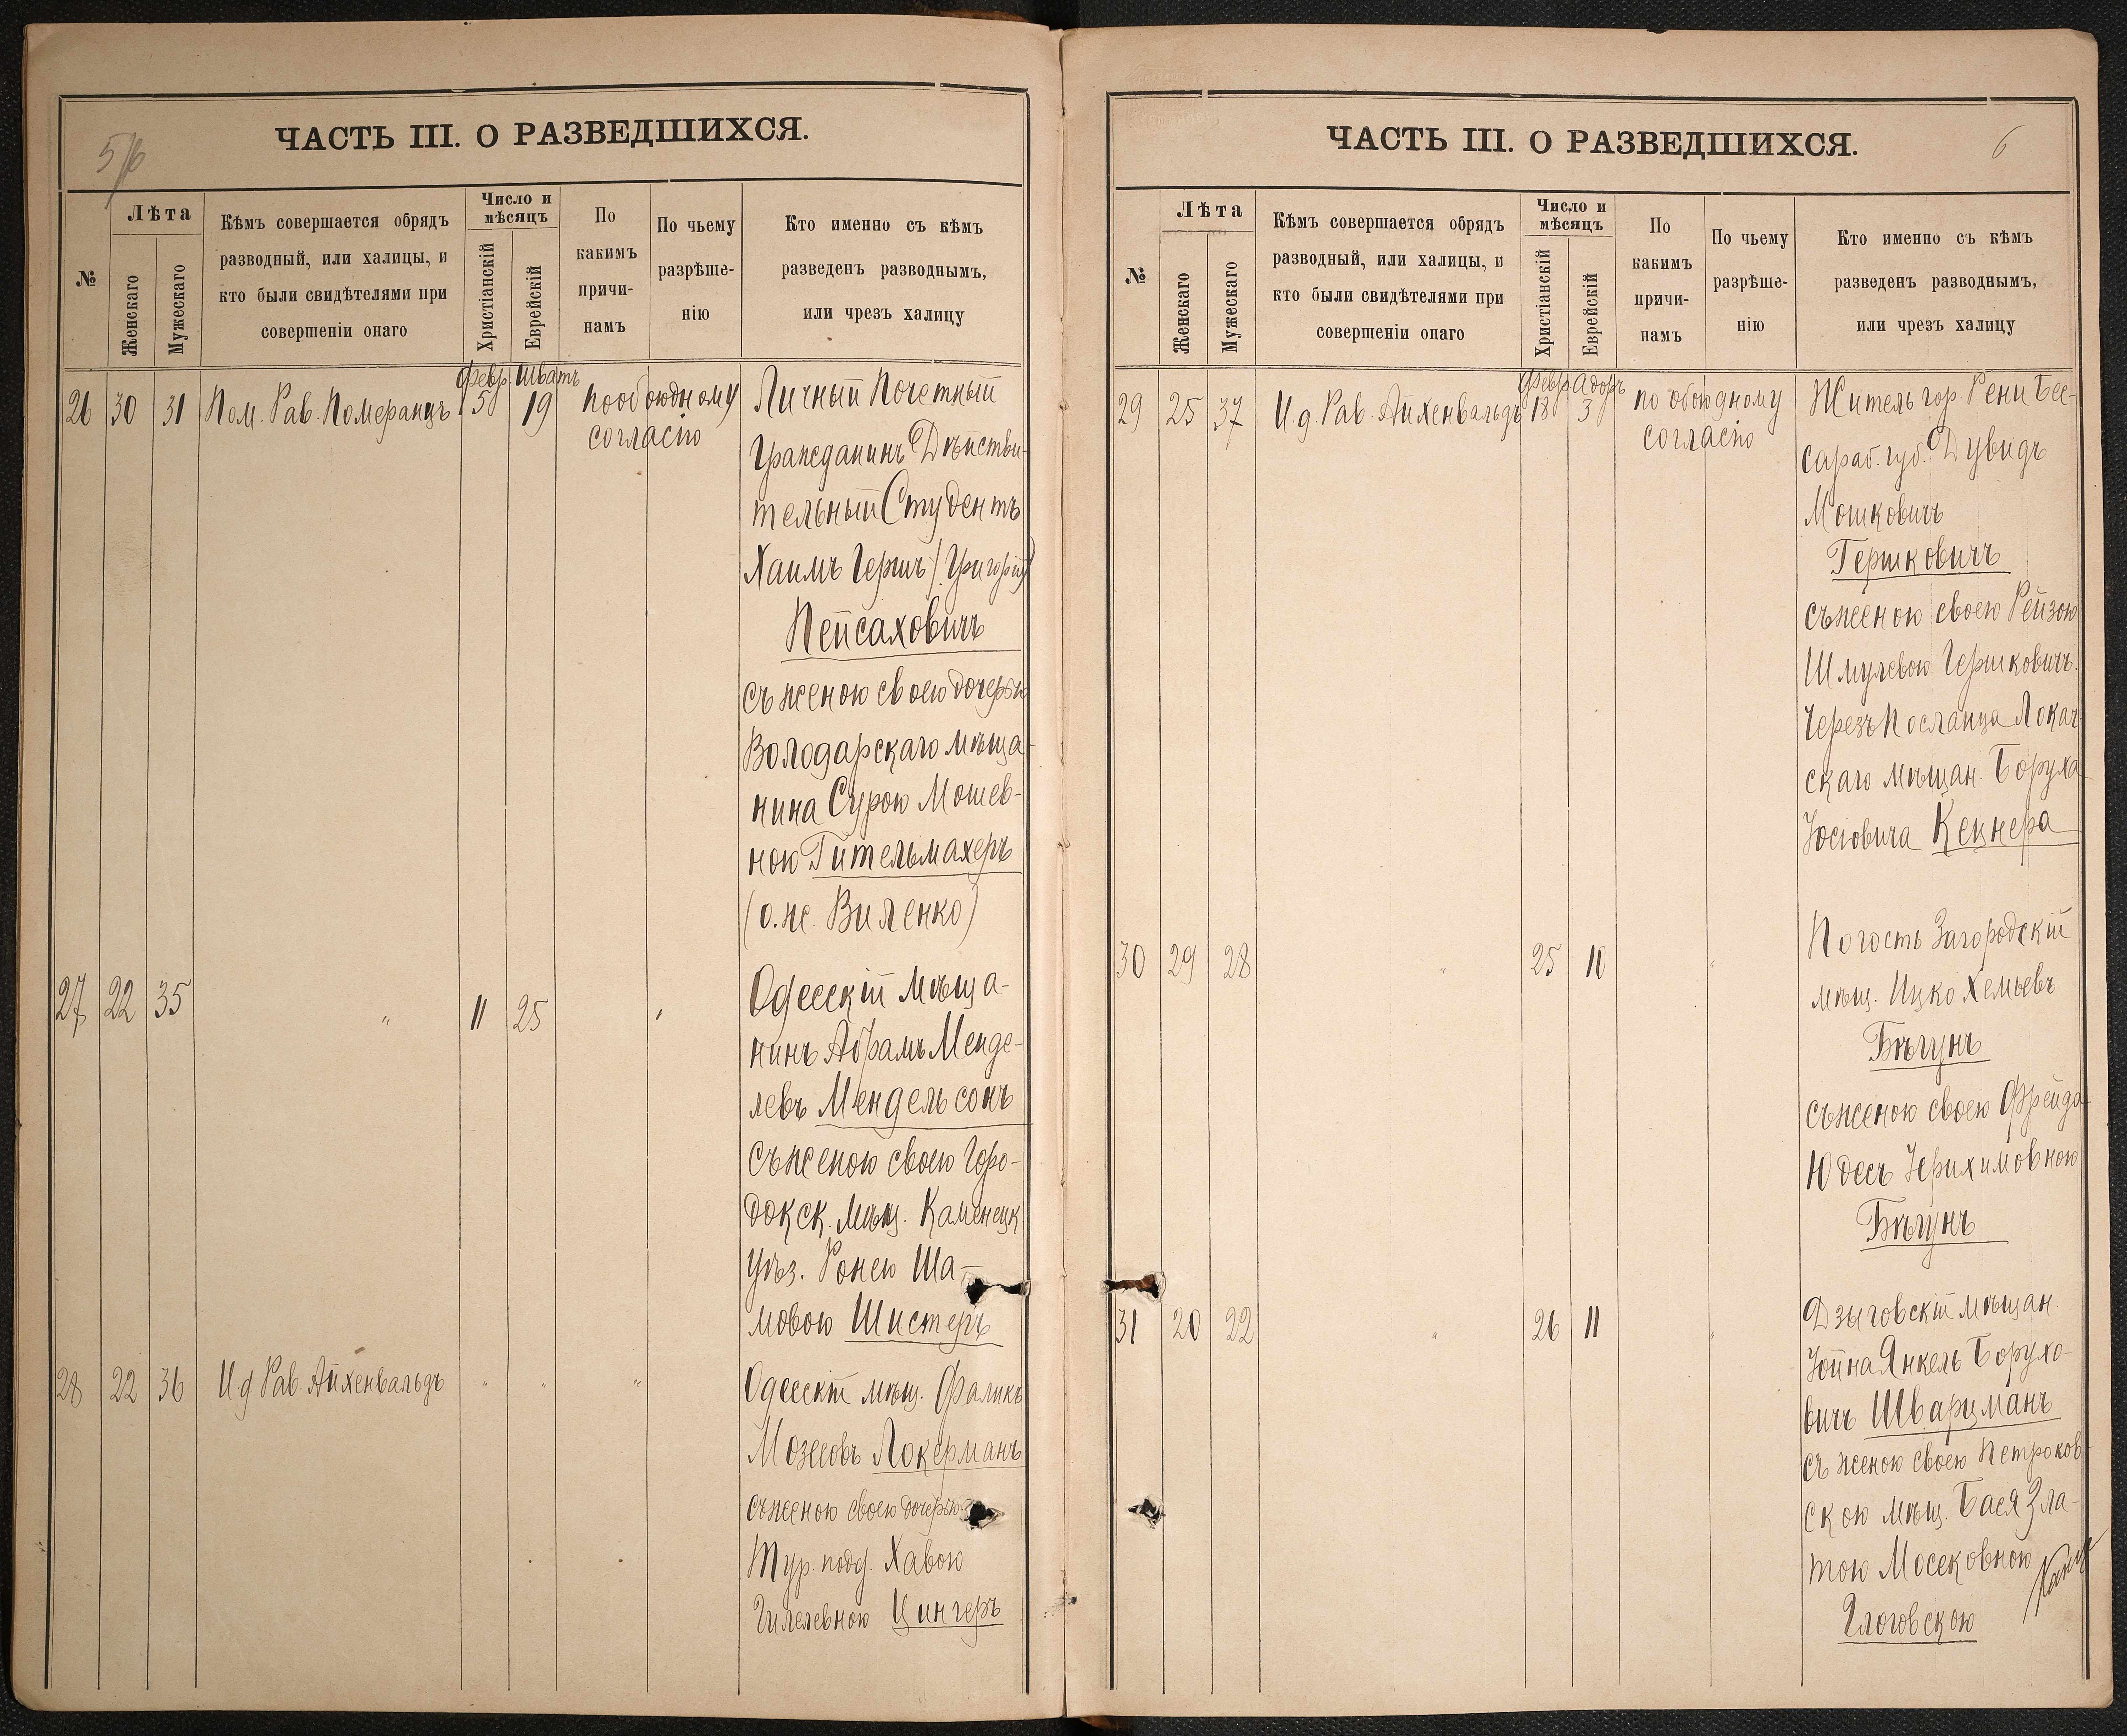 5/6
ЧАСТЬ III. О РАЗВЕДШИХСЯ.
№
Лѣта
Женскаго
Мужескаго
Кѣмъ совершается обрядъ
разводный, или халицы, и
кто были свидѣтелями при
совершеніи онаго
Число и
мѣсяцъ
Христіанскій
Еврейскій
По
какимъ
причи-
намъ
По чьему
разрѣше-
нію
Кто именно съ кѣмъ
разведенъ разводнымъ,
или чрезъ халицу
Февр. Шватъ
26 30 31 Пом. Рав. Померанцъ 5 19 по обоюдному
согласію
Личный Почетный
Гражданинъ Дѣйстви-
тельный Студентъ
Хаимъ Гершъ (Григорій)
Пейсаховичъ
съ женою своею дочерью
Володарскаго мѣща-
нина Сурою Мошев-
ною Гительмахеръ
(о. же. Виленко)
27 22 35 " 11 25 "
Одесскій мѣща-
нинъ Абрамъ Менде-
левъ Мендельсонъ
съ женою своею Горо-
докск. мѣщ. Каменецк.
уѣз. Ронею Ша-
мовою Шистеръ
28 22 36 И д Рав. Айхенвальдъ " " "
Одесскій мѣщ. Фаликъ
Мозесовъ Локерманъ
съ женою своею дочерью
Тур. подд. Хавою
Гилелевною Цингеръ
6
ЧАСТЬ III. О РАЗВЕДШИХСЯ.
№
Лѣта
Женскаго
Мужескаго
Кѣмъ совершается обрядъ
разводный, или халицы, и
кто были свидѣтелями при
совершеніи онаго
Число и
мѣсяцъ
Христіанскій
Еврейскій
По
какимъ
причи-
намъ
По чьему
разрѣше-
нію
Кто именно съ кѣмъ
разведенъ разводнымъ,
или чрезъ халицу
Февр Адоръ
29 25 37 И д. Рав. Айхенвальдъ 18 3 по обоюдному
согласію
Житель гор. Рени Бес-
сараб. губ. Дувидъ
Мошковичъ
Гершковичъ
съ женою своею Рейзою
Шмулевою Гершковичъ.
Черезъ посланца Локач-
скаго мѣщан. Боруха
Іосіовича Кецнера
30 29 28 " 25 10 "
Погость Загородскій
мѣщ. Ицко Хемьевъ
Бѣгунъ
съ женою своею Фрейда-
Юдесъ Іерихимовною
Бѣгунъ
31 20 22 " 26 11 "
Дзыговскій мѣщан.
Іойна Янкель Борухо-
вичъ Шварцманъ
съ женою своею Петроков-
скою мѣщ. Бася Зла-
тою Мосековною
Глоговскою